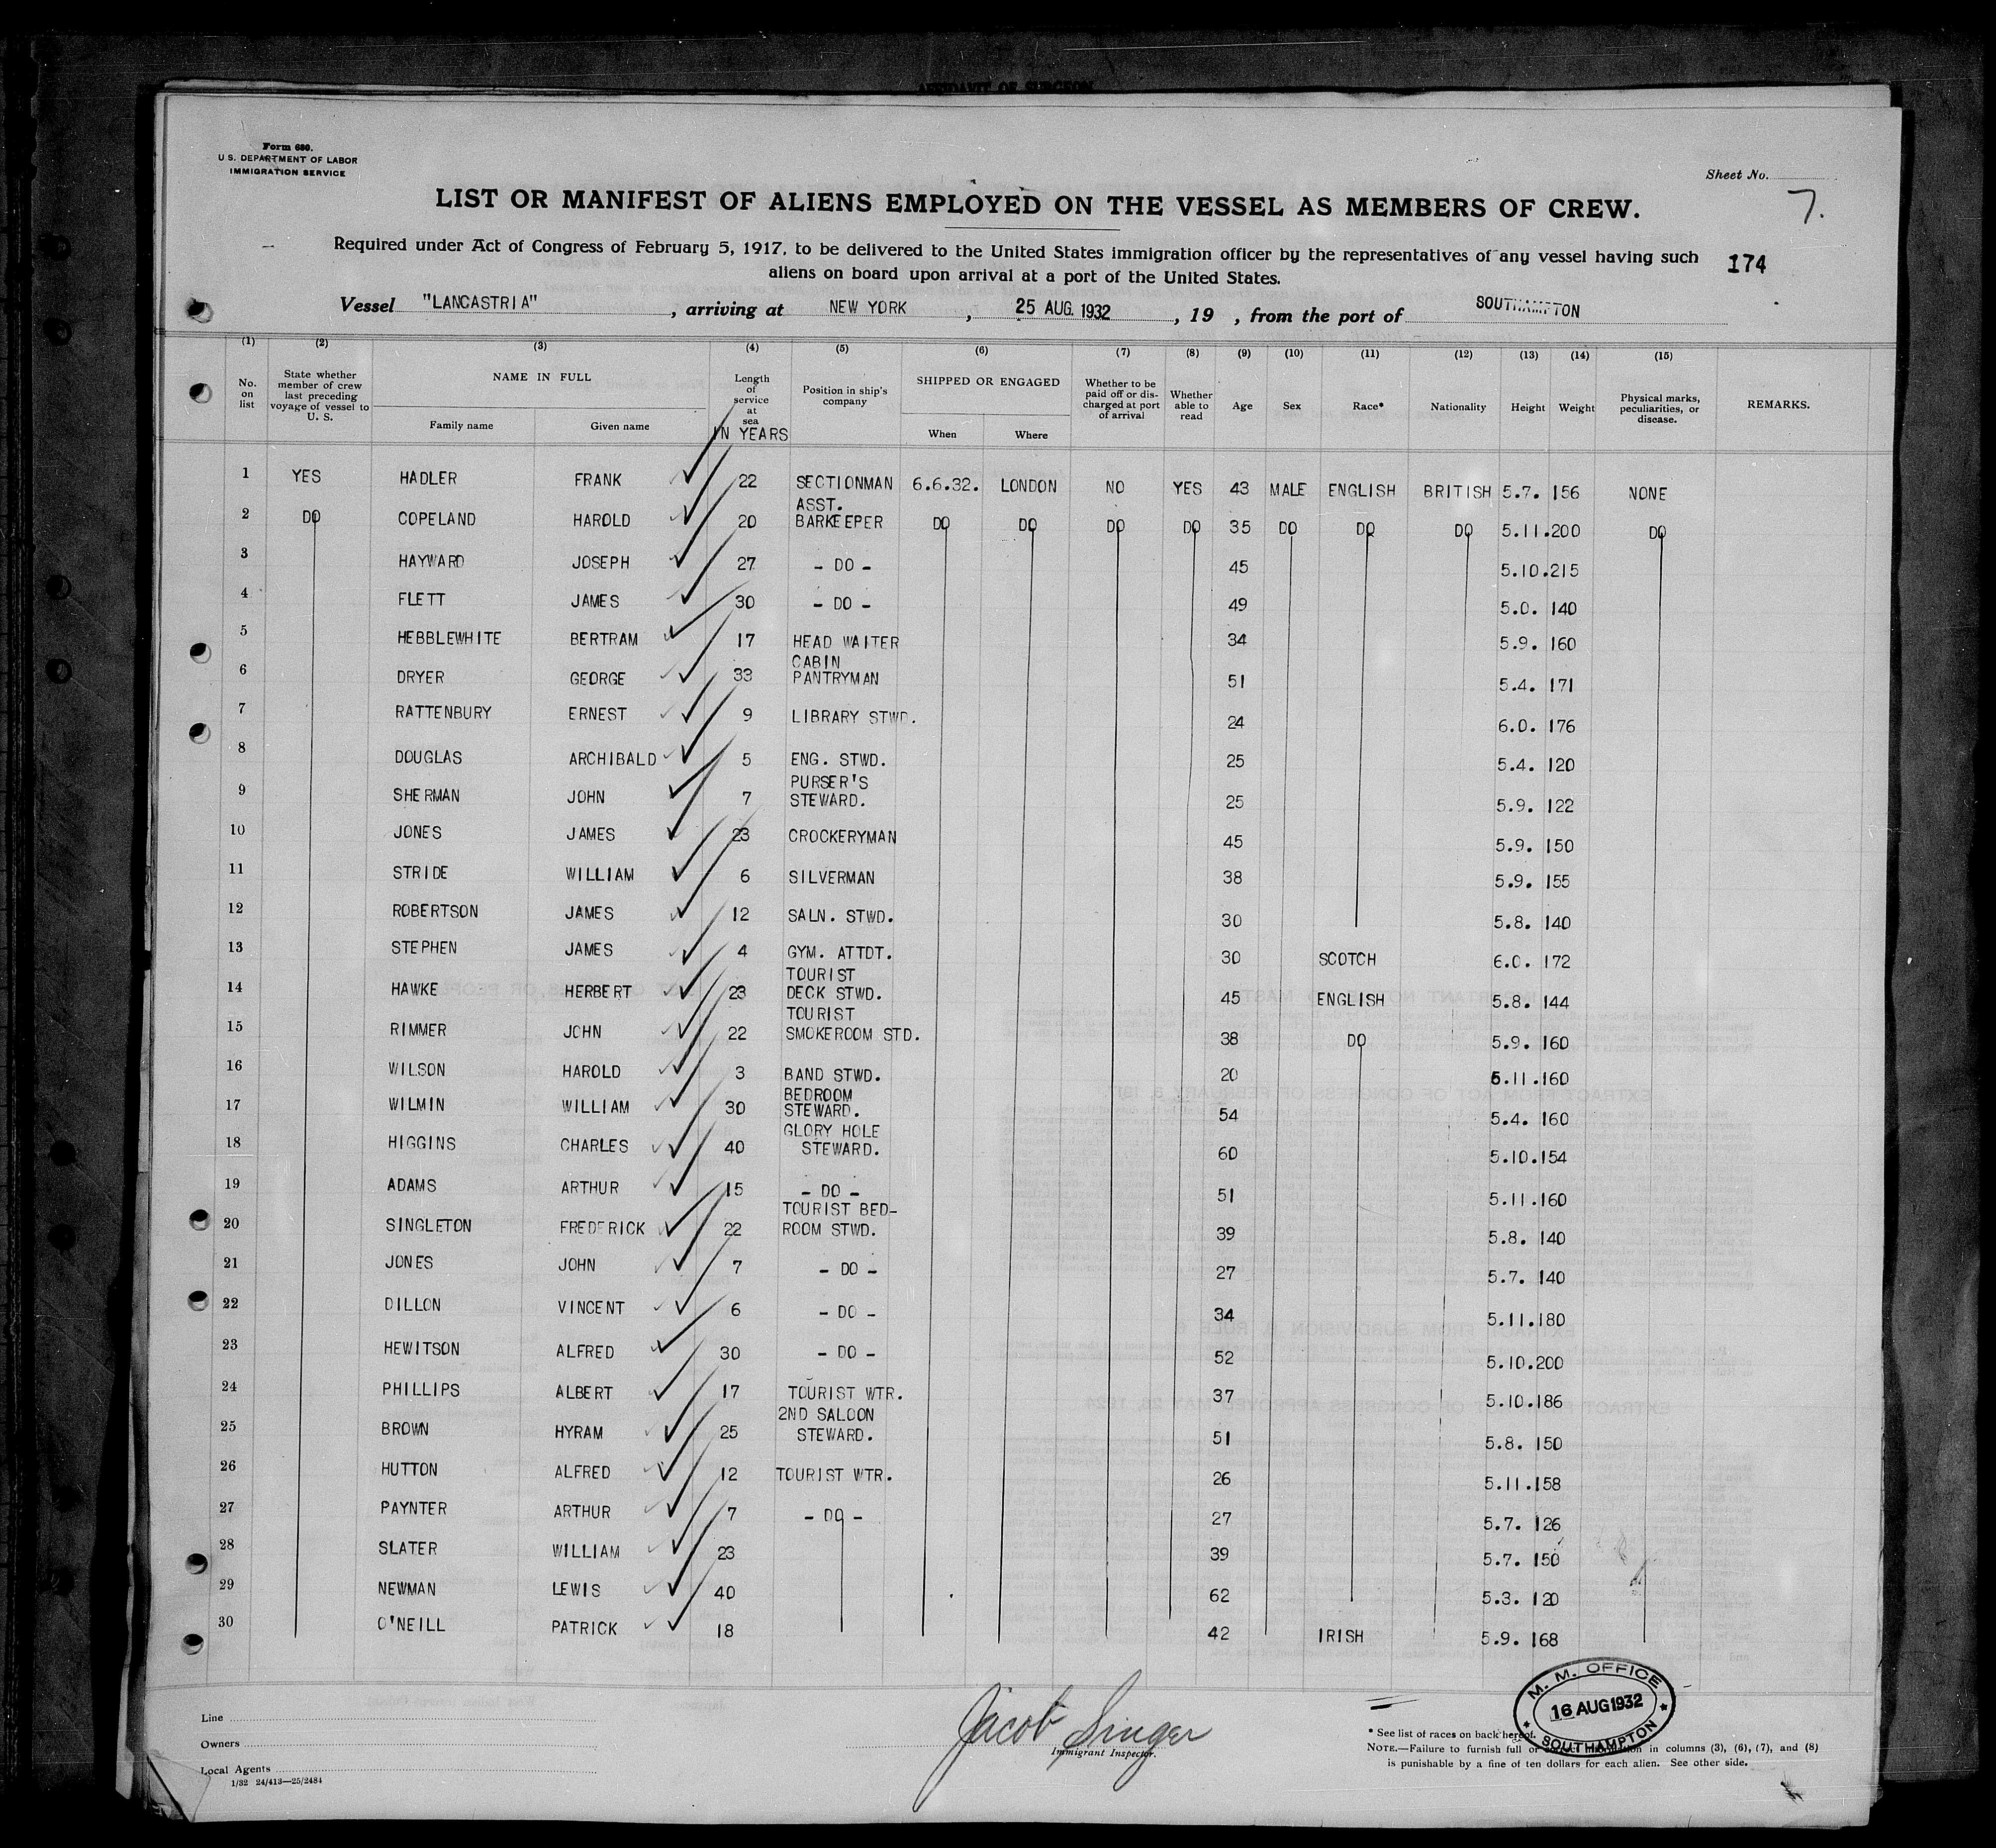 AFFIDAVIT OF SURGEON
Form 680.
U.S. DEPARTMENT OF LABOR
IMMIGRATION SERVICE
Sheet No.
7.
LIST OR MANIFEST OF ALIENS EMPLOYED ON THE VESSEL AS MEMBERS OF CREW.
Required under Act of Congress of February 5, 1917, to be delivered to the United States immigration officer by the representatives of any vessel having such
aliens on board upon arrival at a port of the United States.
174
Vessel "LANCASTRIA" , arriving at NEW YORK , 25 AUG. 1932 , 19 , from the port of SOUTHAMPTON
(1) (2) (3) (4) (5) (6) (7) (8) (9) (10) (11) (12) (13) (14) (15)
No. on list
State whether member of crew last preceding voyage of vessel to U. S.
NAME IN FULL
Family name Given name
Length of service at sea
IN YEARS
Position in ship's company
SHIPPED OR ENGAGED
When Where
Whether to be paid off or discharged at port of arrival
Whether able to read
Age Sex Race* Nationality Height Weight
Physical marks, peculiarities, or disease.
REMARKS.
1 YES HADLER FRANK 22 SECTIONMAN 6.6.32. LONDON NO YES 43 MALE ENGLISH BRITISH 5.7. 156 NONE
2 DO COPELAND HAROLD 20 ASST. BARKEEPER DO DO DO DO 35 DO DO DO 5.11.200 DO
3 HAYWARD JOSEPH 27 - DO - 45 5.10.215
4 FLETT JAMES 30 - DO - 49 5.0. 140
5 HEBBLEWHITE BERTRAM 17 HEAD WAITER 34 5.9. 160
6 DRYER GEORGE 33 CABIN PANTRYMAN 51 5.4. 171
7 RATTENBURY ERNEST 9 LIBRARY STWD. 24 6.0. 176
8 DOUGLAS ARCHIBALD 5 ENG. STWD. 25 5.4. 120
9 SHERMAN JOHN 7 PURSER'S STEWARD. 25 5.9. 122
10 JONES JAMES 23 CROCKERYMAN 45 5.9. 150
11 STRIDE WILLIAM 6 SILVERMAN 38 5.9. 155
12 ROBERTSON JAMES 12 SALN. STWD. 30 5.8. 140
13 STEPHEN JAMES 4 GYM. ATTDT. 30 SCOTCH 6.0. 172
14 HAWKE HERBERT 23 TOURIST DECK STWD. 45 ENGLISH 5.8. 144
15 RIMMER JOHN 22 TOURIST SMOKEROOM STD. 38 DO 5.9. 160
16 WILSON HAROLD 3 BAND STWD. 20 5.11.160
17 WILMIN WILLIAM 30 BEDROOM STEWARD. 54 5.4. 160
18 HIGGINS CHARLES 40 GLORY HOLE STEWARD. 60 5.10.154
19 ADAMS ARTHUR 15 - DO - 51 5.11.160
20 SINGLETON FREDERICK 22 TOURIST BED-ROOM STWD. 39 5.8. 140
21 JONES JOHN 7 - DO - 27 5.7. 140
22 DILLON VINCENT 6 - DO - 34 5.11.180
23 HEWITSON ALFRED 30 - DO - 52 5.10.200
24 PHILLIPS ALBERT 17 TOURIST WTR. 37 5.10.186
25 BROWN HYRAM 25 2ND SALOON STEWARD. 51 5.8. 150
26 HUTTON ALFRED 12 TOURIST WTR. 26 5.11.158
27 PAYNTER ARTHUR 7 - DO - 27 5.7. 126
28 SLATER WILLIAM 23 39 5.7. 150
29 NEWMAN LEWIS 40 62 5.3. 120
30 O'NEILL PATRICK 18 42 IRISH 5.9. 168
M. M. OFFICE
16 AUG 1932
SOUTHAMPTON
Line
Owners
Local Agents
1/32 24/413—25/2484
Jacob Singer
Immigrant Inspector.
* See list of races on back hereof.
NOTE.—Failure to furnish full or in columns (3), (6), (7), and (8)
is punishable by a fine of ten dollars for each alien. See other side.